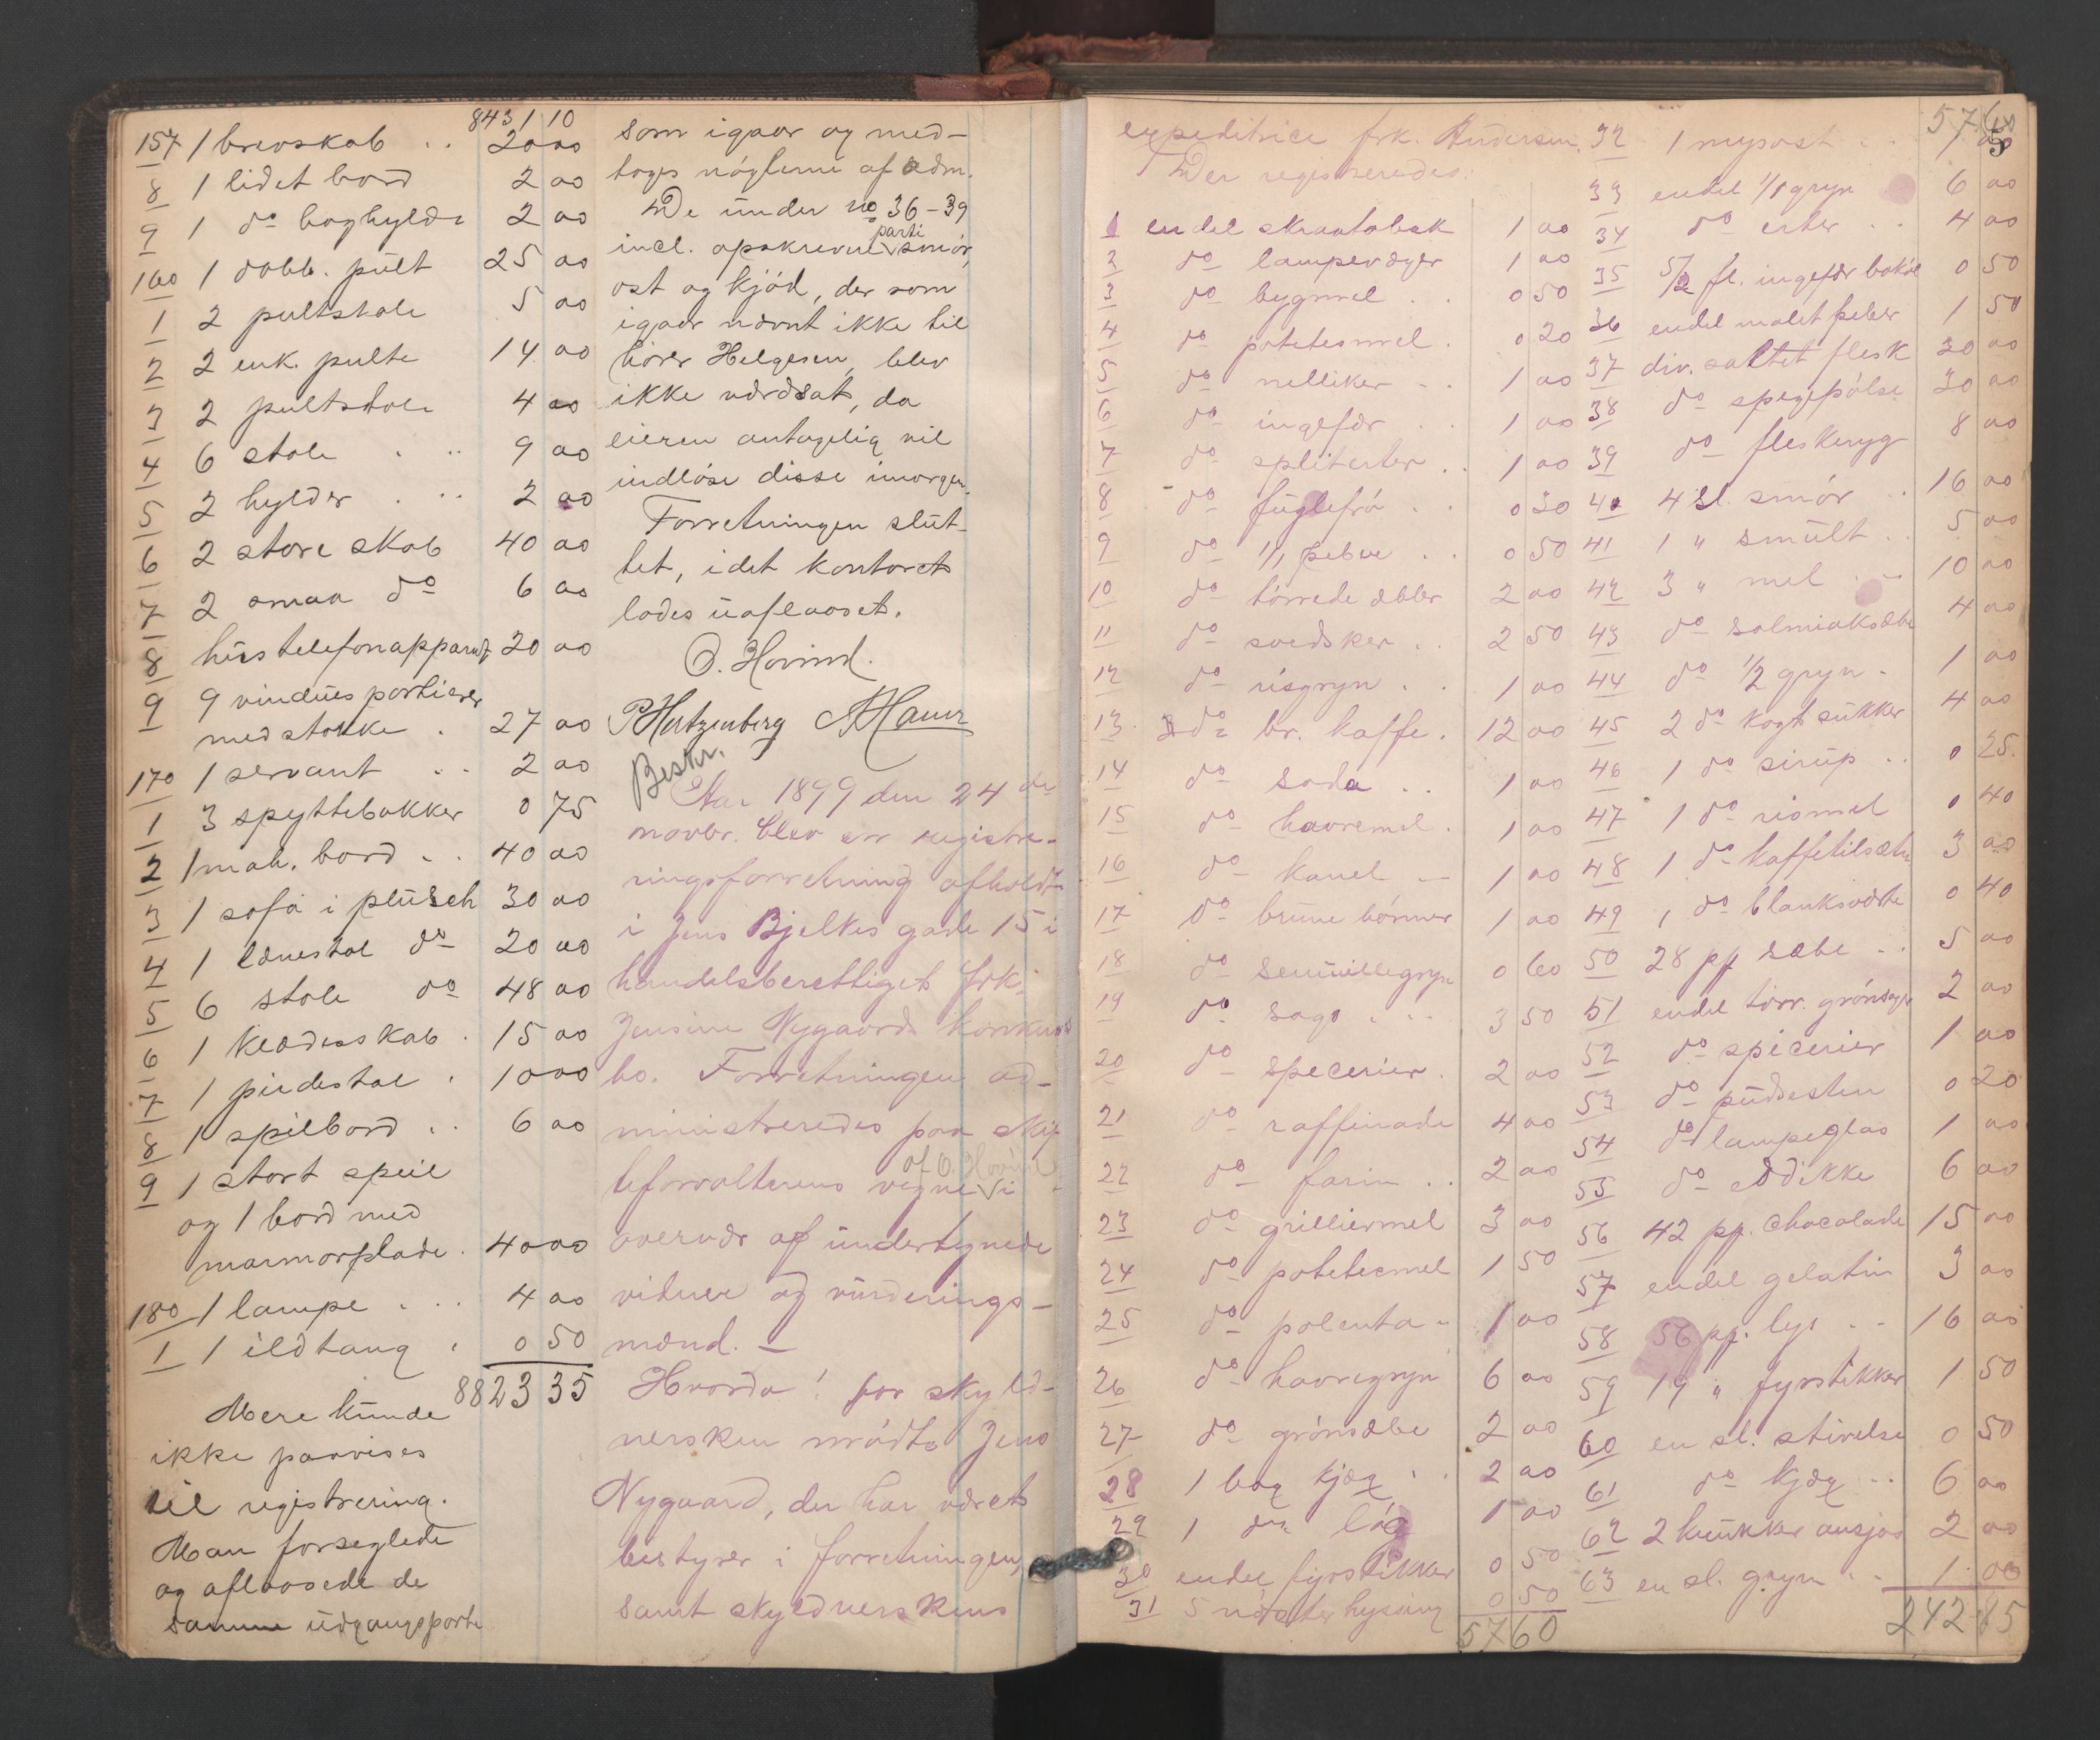 8431 10
157 1 brevskab . . 20 00
8 1 lidet bord 2 00
9 1 do boghylde 2 00
160 1 dobb. pult 25 00
1 2 pultstole 5 00
2 2 enk. pulte 14 00
3 2 pultstole 4 00
4 6 stole . .. 9 00
5 2 hylder . .. 2 00
6 2 store skab 40 00
7 2 smaa do 6 00
8 hustelefonapparat 20 00
9 9 vinduesportierer
med stokke . 27 00
170 1 servant . . 2 00
1 3 spyttebakker 0 75
2 1 mah. bord . . 40 00
3 1 sofa i plüsch 30 00
4 1 lænestol do 20 00
5 6 stole do 48 00
6 1 klædesskab . 15 00
7 1 piedestal . 10 00
8 1 spilbord . . 6 00
9 1 stort speil
og 1 bord med
marmorplade . 40 00
180 1 lampe . . . 4 00
1 1 ildtang . 0 50
8823 35
Mere kunde
ikke paavises
til registrering.
Man forseglede
og aflaasede de
samme udgangsporte
som igaar og med-
toges nøglerne af adm.
De under no 36-39
incl. opskrevne parti smør,
ost og kjød, der som
igaar nævnt ikke til
hører Helgesen, blev
ikke værdsat, da
eieren antagelig vil
indløse disse imorgen.
Forretningen slut-
tet, idet kontoret
lodes uaflaaset.
O. Hovind.
P Hertzenberg AHauer
Beskr.
Aar 1899 den 24de
novbr. blev en registre-
ringsforretning afholdt
i Jens Bjelkes gade 15 i
handelsberettiget frk.
Jensine Nygaards konkurs
bo. Forretningen ad-
ministreredes paa skif-
teforvalterens vegne af O. Hovind i
overvær af undertegnede
vidner og vurderings-
mænd. —
Hvorda! for skyld-
nersken mødte Jens
Nygaard, der har været
bestyrer i forretningen,
samt skyldnerskens
expeditrice frk. Andersen.
Der registreredes:
1 endel skraatobak 1 00
2 do lampevæger 1 00
3 do bygmel . . 0 50
4 do potetesmel . 0 20
5 do nelliker . . 1 00
6 do ingefær . . 1 00
7 do spliterter . . 1 00
8 do fuglefrø . . 0 30
9 do 1/1 peber . . 0 50
10 do tørrede æbler 2 00
11 do svedsker . . 2 50
12 do risgryn . . 1 00
13 do br. kaffe . 12 00
14 do soda . . 1 00
15 do havremel . 1 00
16 do kanel — 1 00
17 do brune bønner 1 00
18 do semuillegryn 0 60
19 do sago . . . 3 50
20 do specerier . 2 00
21 do raffinade 4 00
22 do farin . . 2 00
23 do grilliermel 3 00
24 do potetesmel 1 50
25 do polenta . 1 00
26 do havregryn 6 00
27 do grønsæbe 2 00
28 1 box kjæx . . 2 00
29 1 do løg 1 00
30 endel fyrstikker 0 50
31 5 nøster hysing 0 50
57 60
57 60
32 1 mysost . . 1 00
33 endel 1/1 gryn 6 00
34 do erter . . 4 00
35 5/2 fl. ingefær bakøl 0 50
36 endel malet peber 1 50
37 div. saltet flesk 30 00
38 do spegepølse 30 00
39 do fleskeryg 8 00
40 4 sl. smør . 16 00
41 1 " smult . . 5 00
42 3 " mel . . 10 00
43 do salmiaksæbe 4 00
44 do 1/2 gryn . 1 00
45 2 do kogt sukker 4 00
46 1 do sirup . . 0 25
47 1 do rismel 0 40
48 1 do kaffetilsætn 3 00
49 1 do blanksværte 0 40
50 28 pp sæbe . . 5 00
51 endel tørr. grønsager 2 00
52 do spicerier 1 00
53 do pudsesten 0 20
54 do lampeglas 1 00
55 do eddikke 6 00
56 42 pp. chocolade 15 00
57 endel gelatin 3 00
58 56 pp. lys . . 16 00
59 19 " fyrstikker 1 50
60 en sl. stivelse 0 50
61 do kjæx . . 6 00
62 2 krukker ansjos 2 00
63 en sl. gryn . . 1 00
242 85